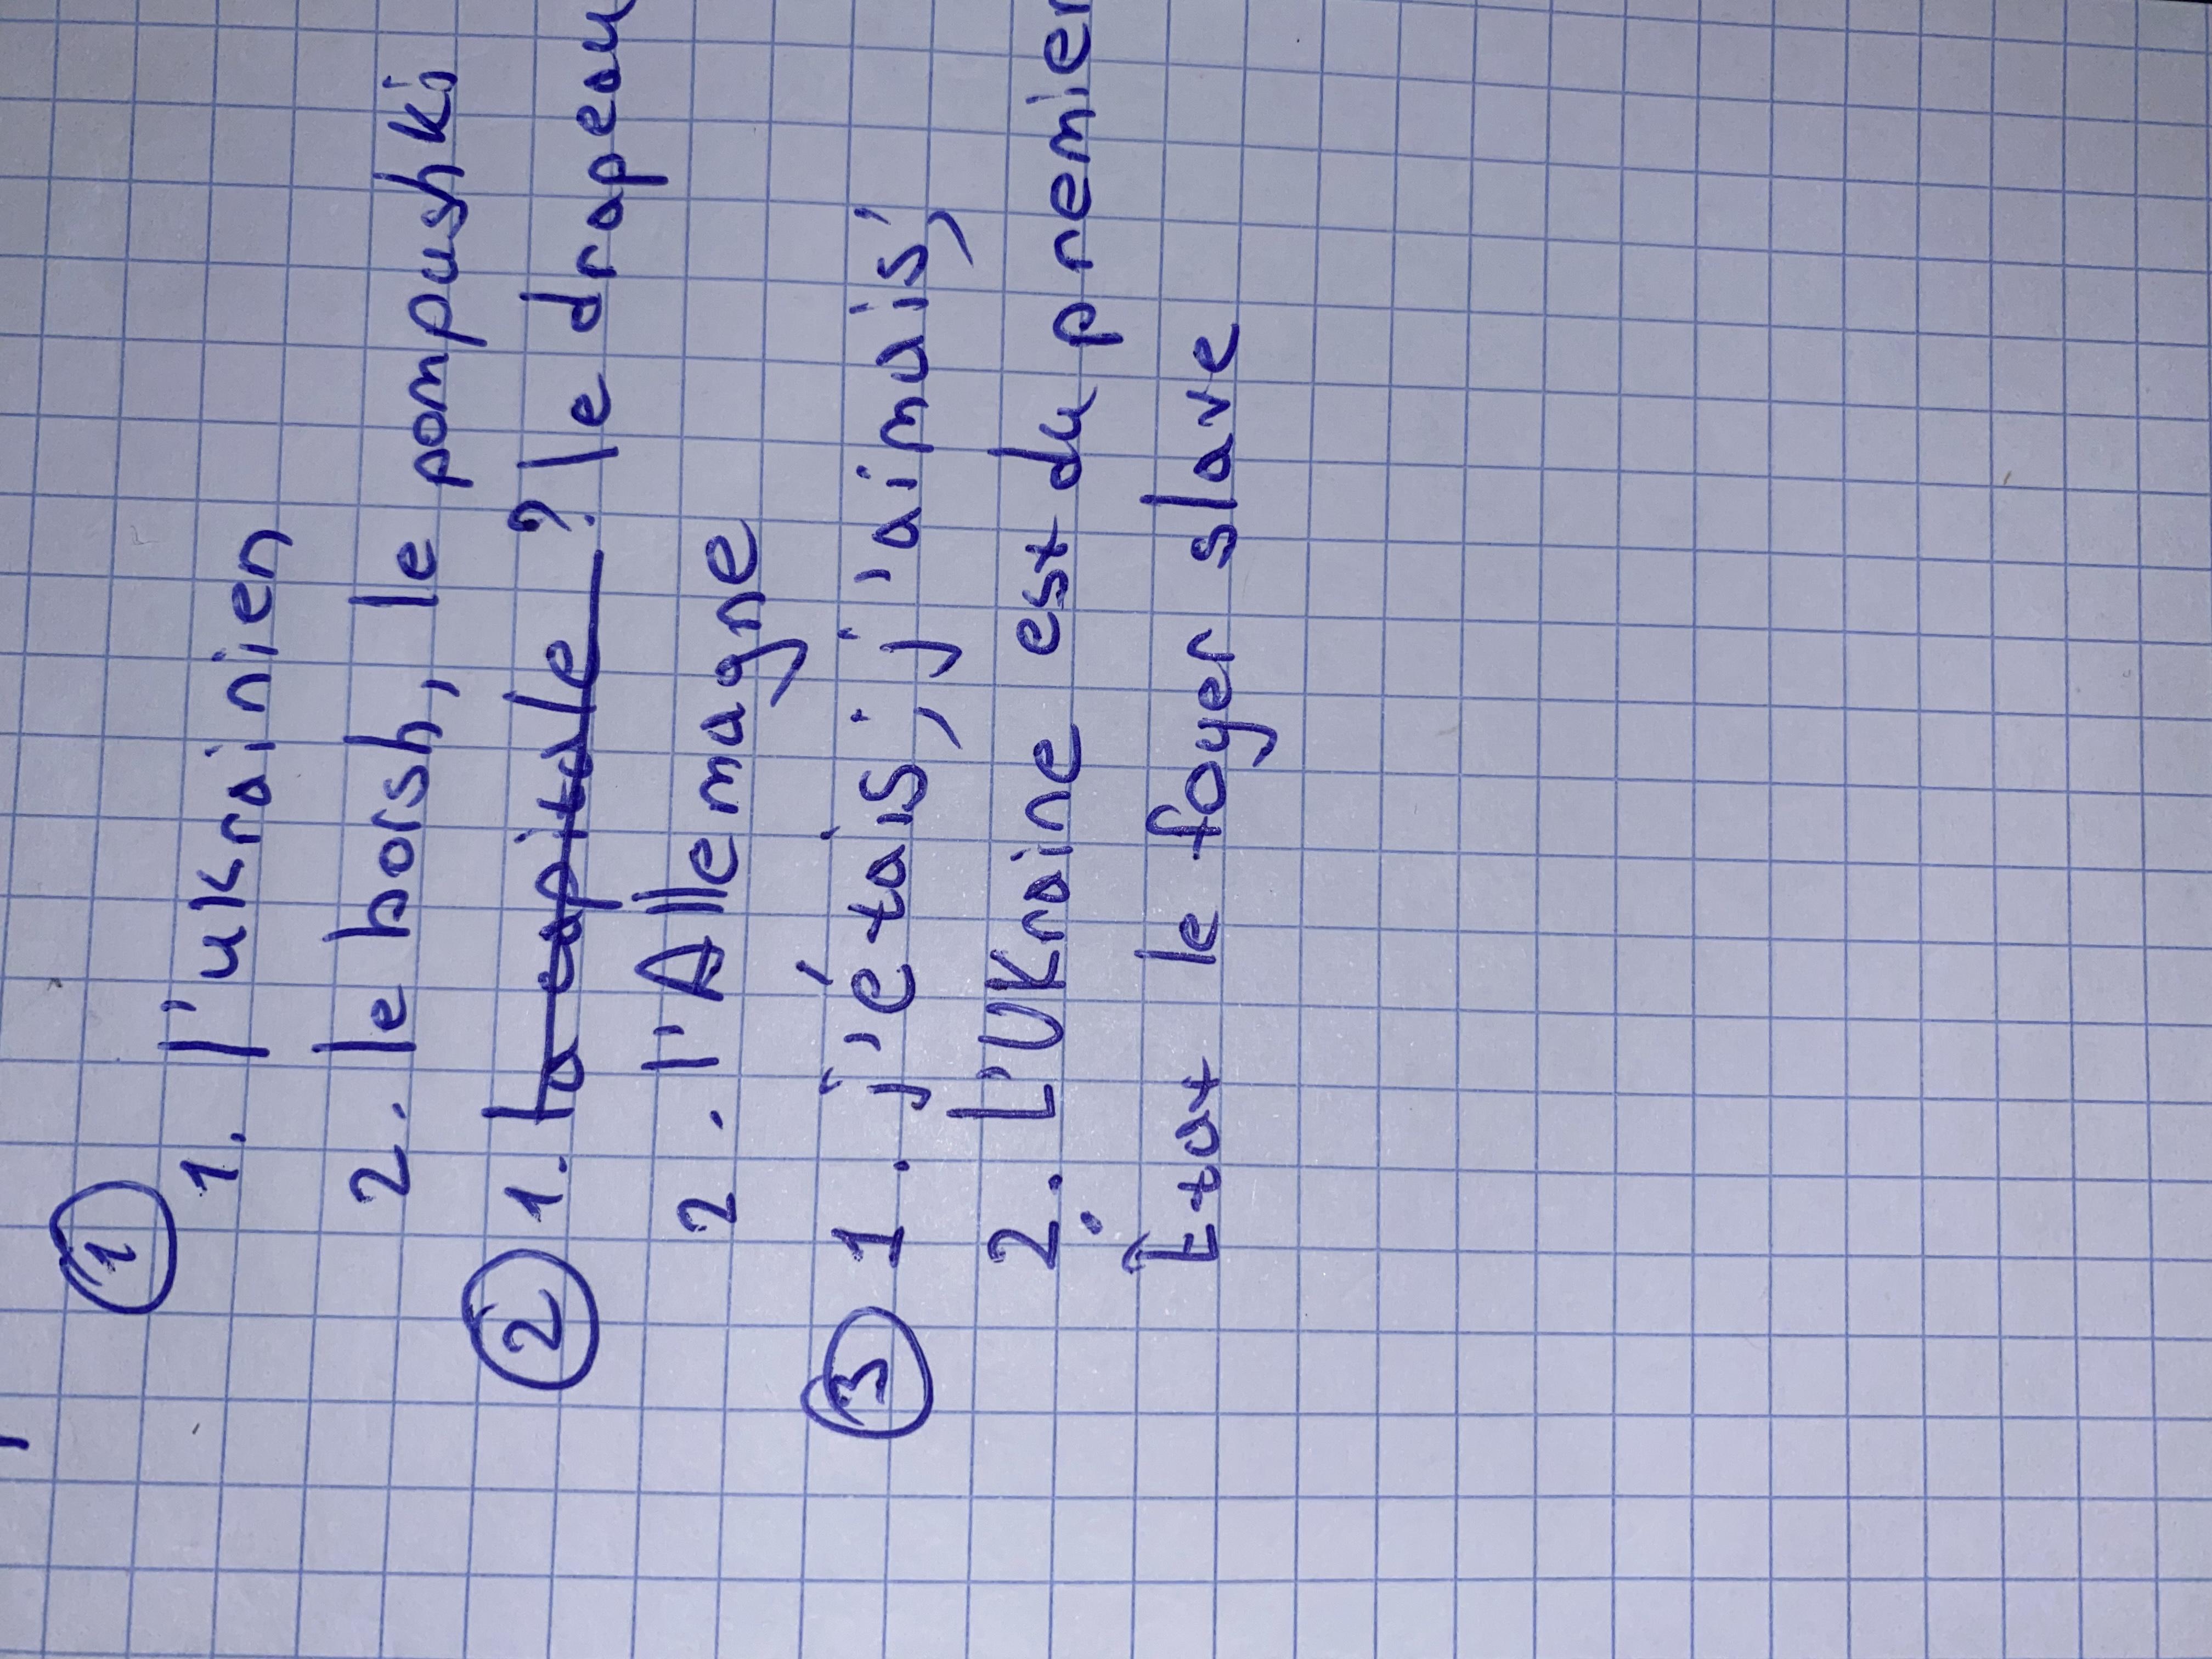 ①
1. l'ukrainien
2. le borsh, le pompushki
② 1. la capitale ? le drapeau
2. l'Allemagne
③ 1. j'étais; j'aimais;
2. L'Ukraine est du premier
État le foyer slave